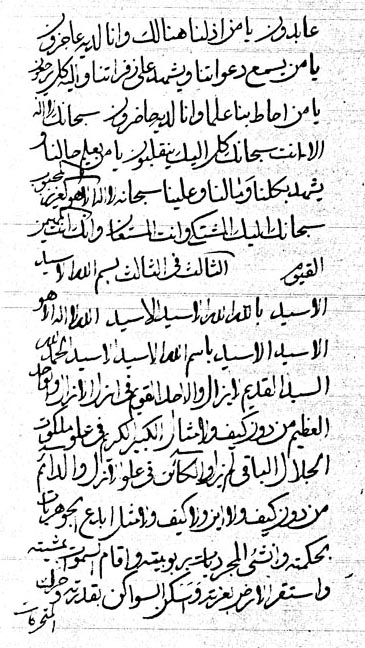 عابدون يا من اذلنا هنالك وانا لديه عاجزون
يا من يسمع دعواتنا ويشهد على زفراتنا وانا اليه كل راجعون
يا من احاط بنا علما وانا لديه حاضرون سبحانك لا اله
الا انت سبحانك كل اليك ينقلبون يا من يعلم حالنا و
يشهد بكلنا وما لنا وعلينا سبحانه لا اله الا هو
سبحانك اليك المشتكى وانت المستعان وانك انت المهيمن
القيوم الثالث في الثالث بسم الله الاسيد
الاسيد بالله الله الاسيد الاسيد الله لا اله الا هو
الاسيد الاسيد باسم الله الاسيد الاسيد الحمد لله
السيد القديم لم يزل والاحد القيوم في ازل الازال والواحد
العظيم من دون كيف ولا مثال الكبير الكريم في علو ملكوت
الجلال الباقي لم يزل والكائن في علو الازل والدائم
من دون كيف ولا اين ولا كيف ولا مثل ابدع الجوهريات
بحكمته وانشئ المجرديات بربوبيته واقام السموات بمشيته
واستقر الارض بعزته وسكن السواكن بقدرته وحرك
المتحركات